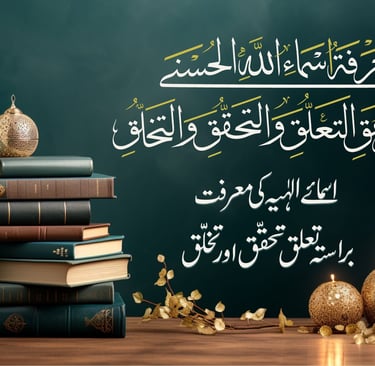 معرفة اسماء الله الحسنى
التعلق والتحقق والتخلق
اسمائے الٰہیہ کی معرفت
براستہ تعلق تحقّق اور تخلّق